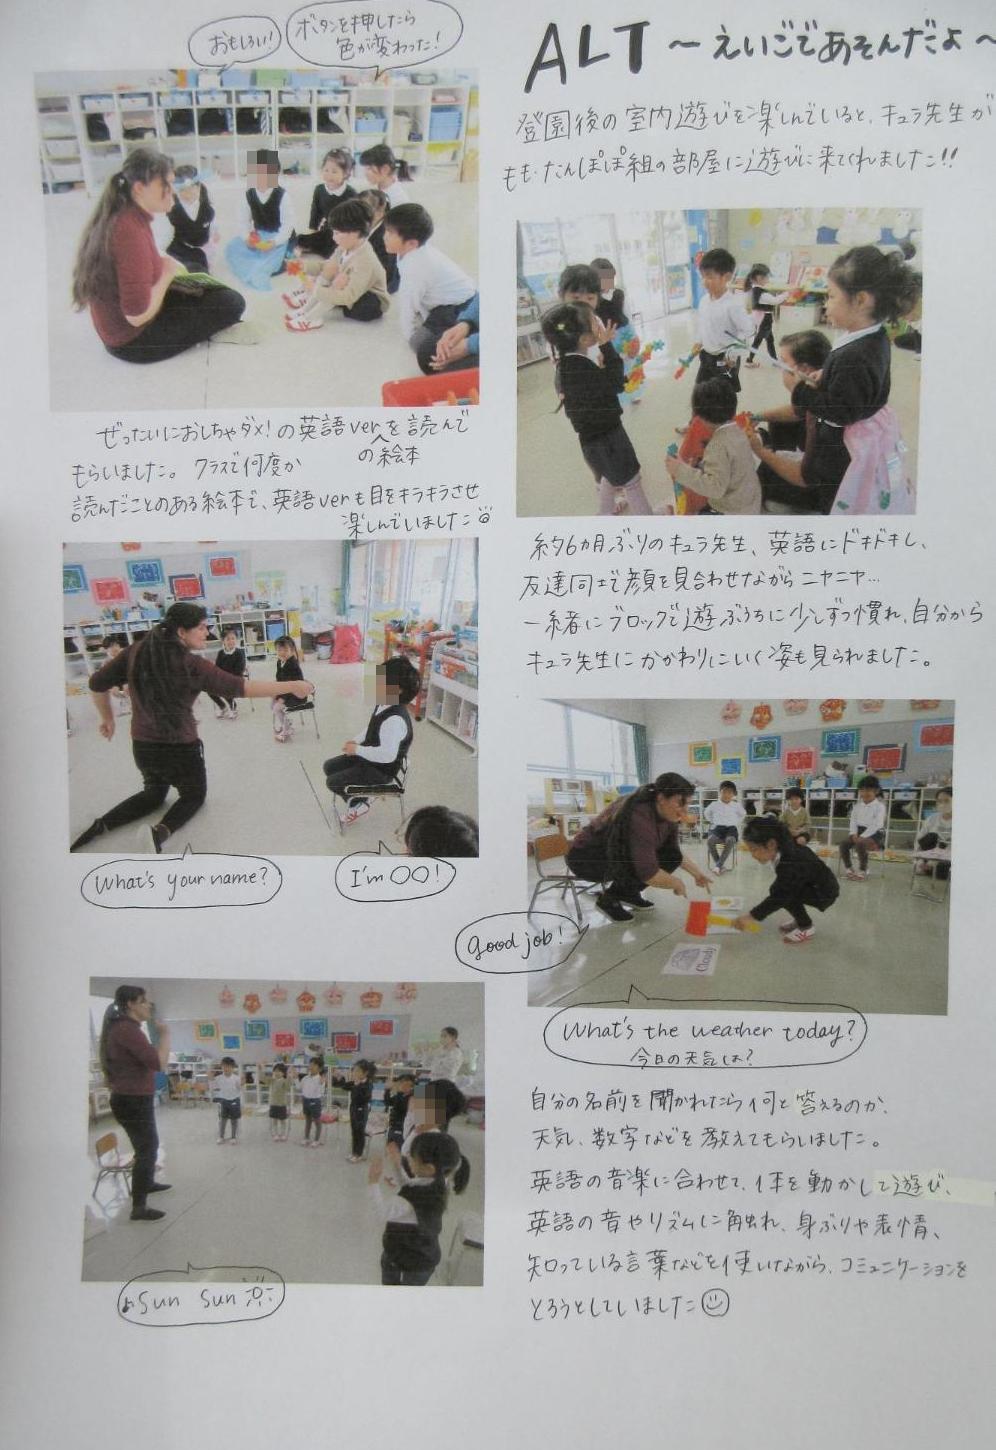 ALT ～えいごであそんだよ～
登園後の室内遊びを楽しんでいると、キュラ先生が
もも・たんぽぽ組の部屋に遊びに来てくれました!!
おもしろい!
ボタンを押したら
色が変わった!
ぜったいにおしちゃダメ!の英語verを読んで
の絵本
もらいました。クラスで何度か
読んだことのある絵本で、英語verも目をキラキラさせ
楽しんでいました
約6カ月ぶりのキュラ先生、英語にドキドキし、
友達同士で顔を見合わせながらニヤニヤ…
一緒にブロックで遊ぶうちに少しずつ慣れ、自分から
キュラ先生にかかわりにいく姿も見られました。
What's your name?
I'm ○○!
Good job!
Cloudy
What's the weather today?
今日の天気は?
♪Sun Sun
自分の名前を聞かれたら何と答えるのか、
天気、数字などを教えてもらいました。
英語の音楽に合わせて、体を動かして遊び、
英語の音やリズムに触れ、身ぶりや表情、
知っている言葉などを使いながら、コミュニケーションを
とろうとしていました